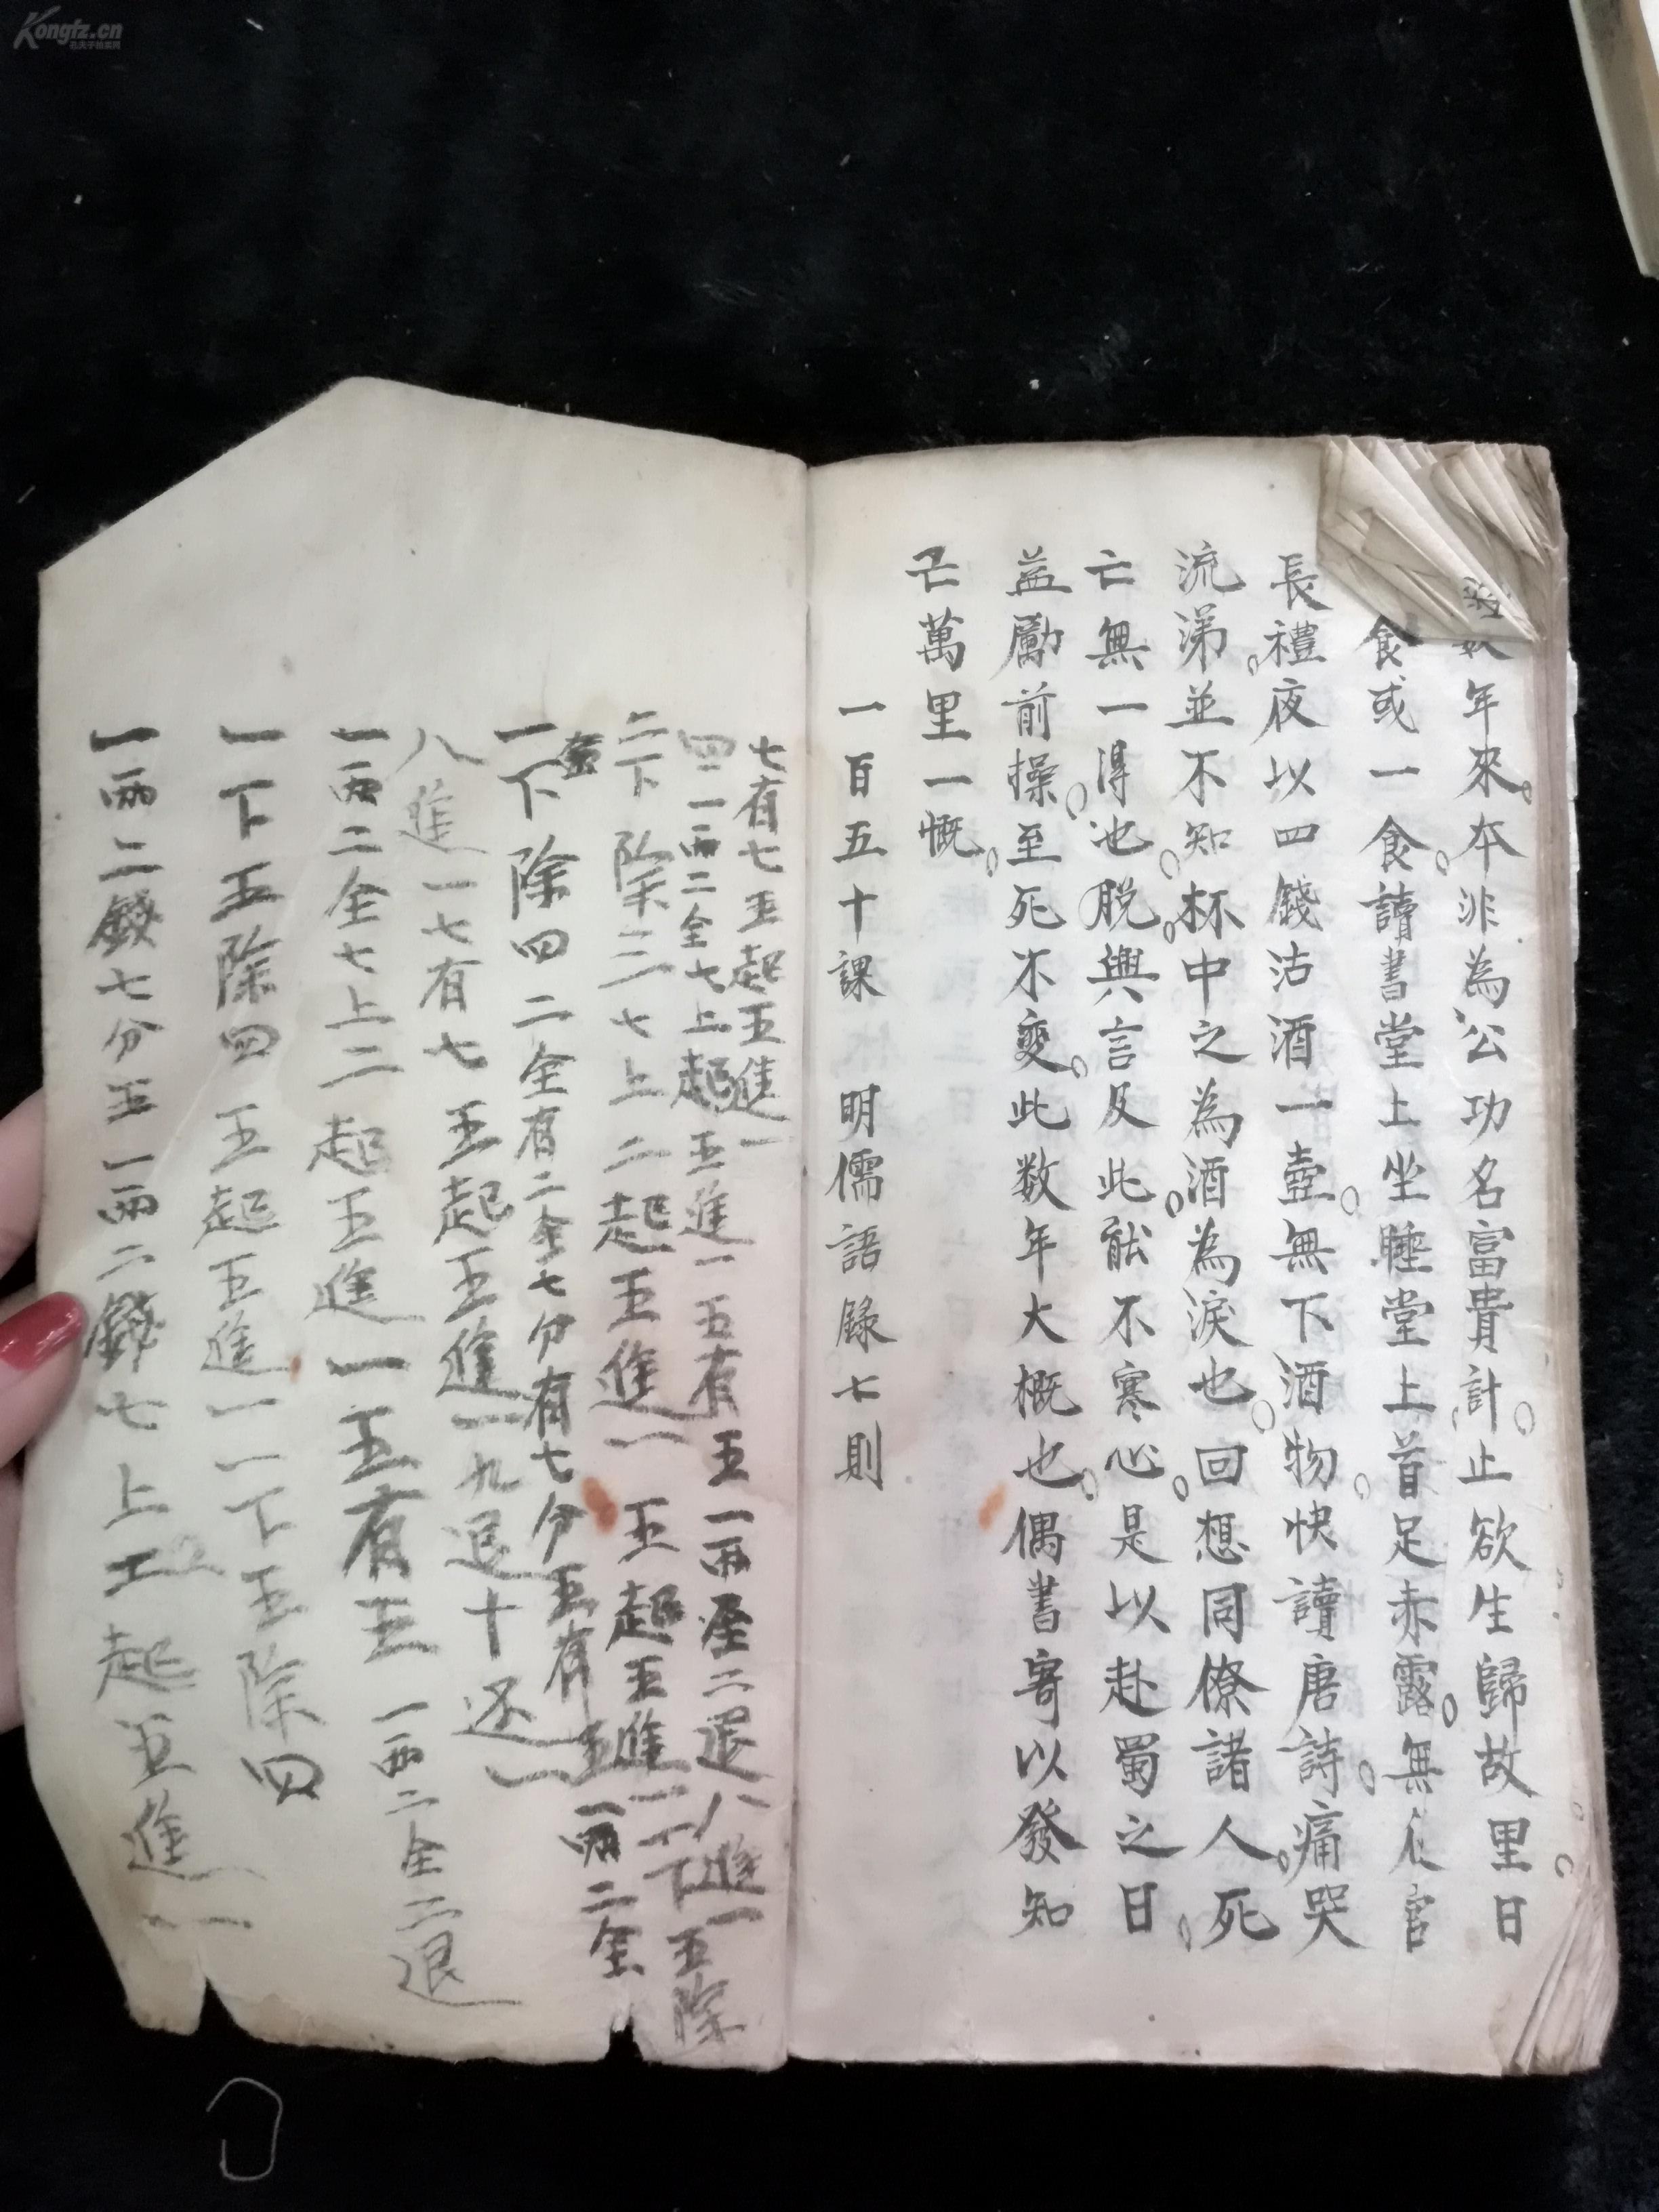 数年來本非為公功名富貴計止欲生歸故里日
食或一食讀書堂上坐睡堂上首足赤露無衣官
長禮夜以四錢沽酒一壺無下酒物快讀唐詩痛哭
流涕並不知杯中之為酒為淚也回想同僚諸人死
亡無一得也脱與言及此能不寒心是以赴蜀之日
益勵前操至死不變此数年大概也偶書寄以發知
己萬里一慨
一百五十課 明儒語錄七則
七有七五起五進一
四二一两二全七上起五進一五有五一两屋二退八進一
二下除三七上二起五進一五起五進一一下五除
一下除四二全有二全七分有七分五有五一两二全
八進一七有七五起五進一九退十还一
一两二全七上二起五進一五有五一两二全二退
一下五除四五起五進一一下五除四
一两二錢七分五一两二錢七上二起五進一
Kongfz.cn